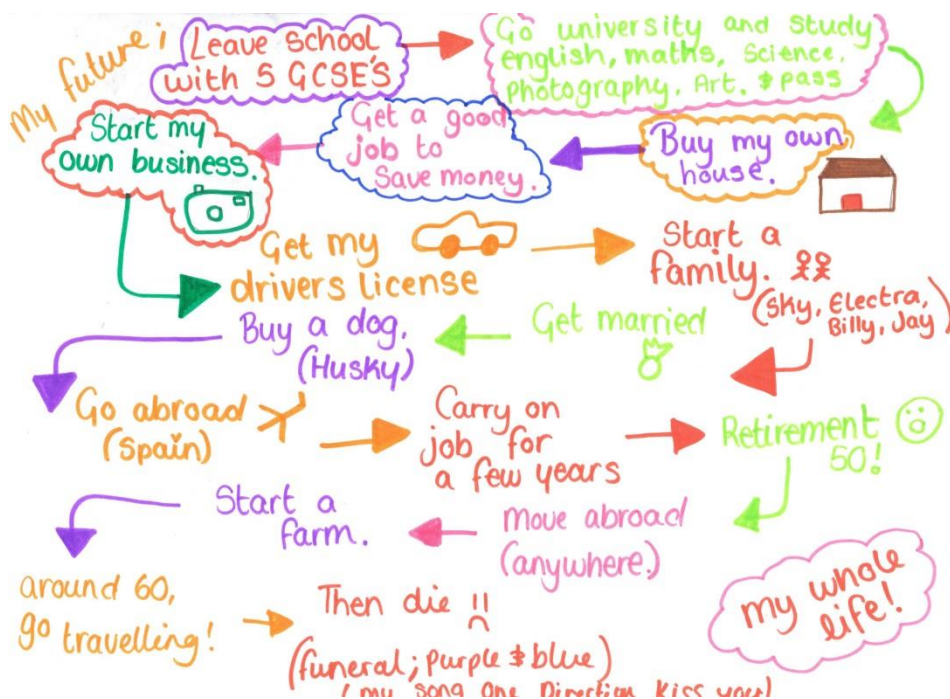 My future;
Leave school
with 5 GCSE'S
Go university and study
english, maths, Science,
photography, Art, & pass
Buy my own
house.
Get a good
job to
Save money.
Start my
own business.
Get my
drivers license
Start a
family.
(Sky, Electra,
Billy, Jay)
Get married
Buy a dog,
(Husky)
Go abroad
(Spain)
Carry on
job for
a few years
Retirement
50!
Move abroad
(anywhere.)
Start a
farm.
around 60,
go travelling!
Then die
(funeral; Purple & blue)
(my song One Direction Kiss you!)
my whole
life!